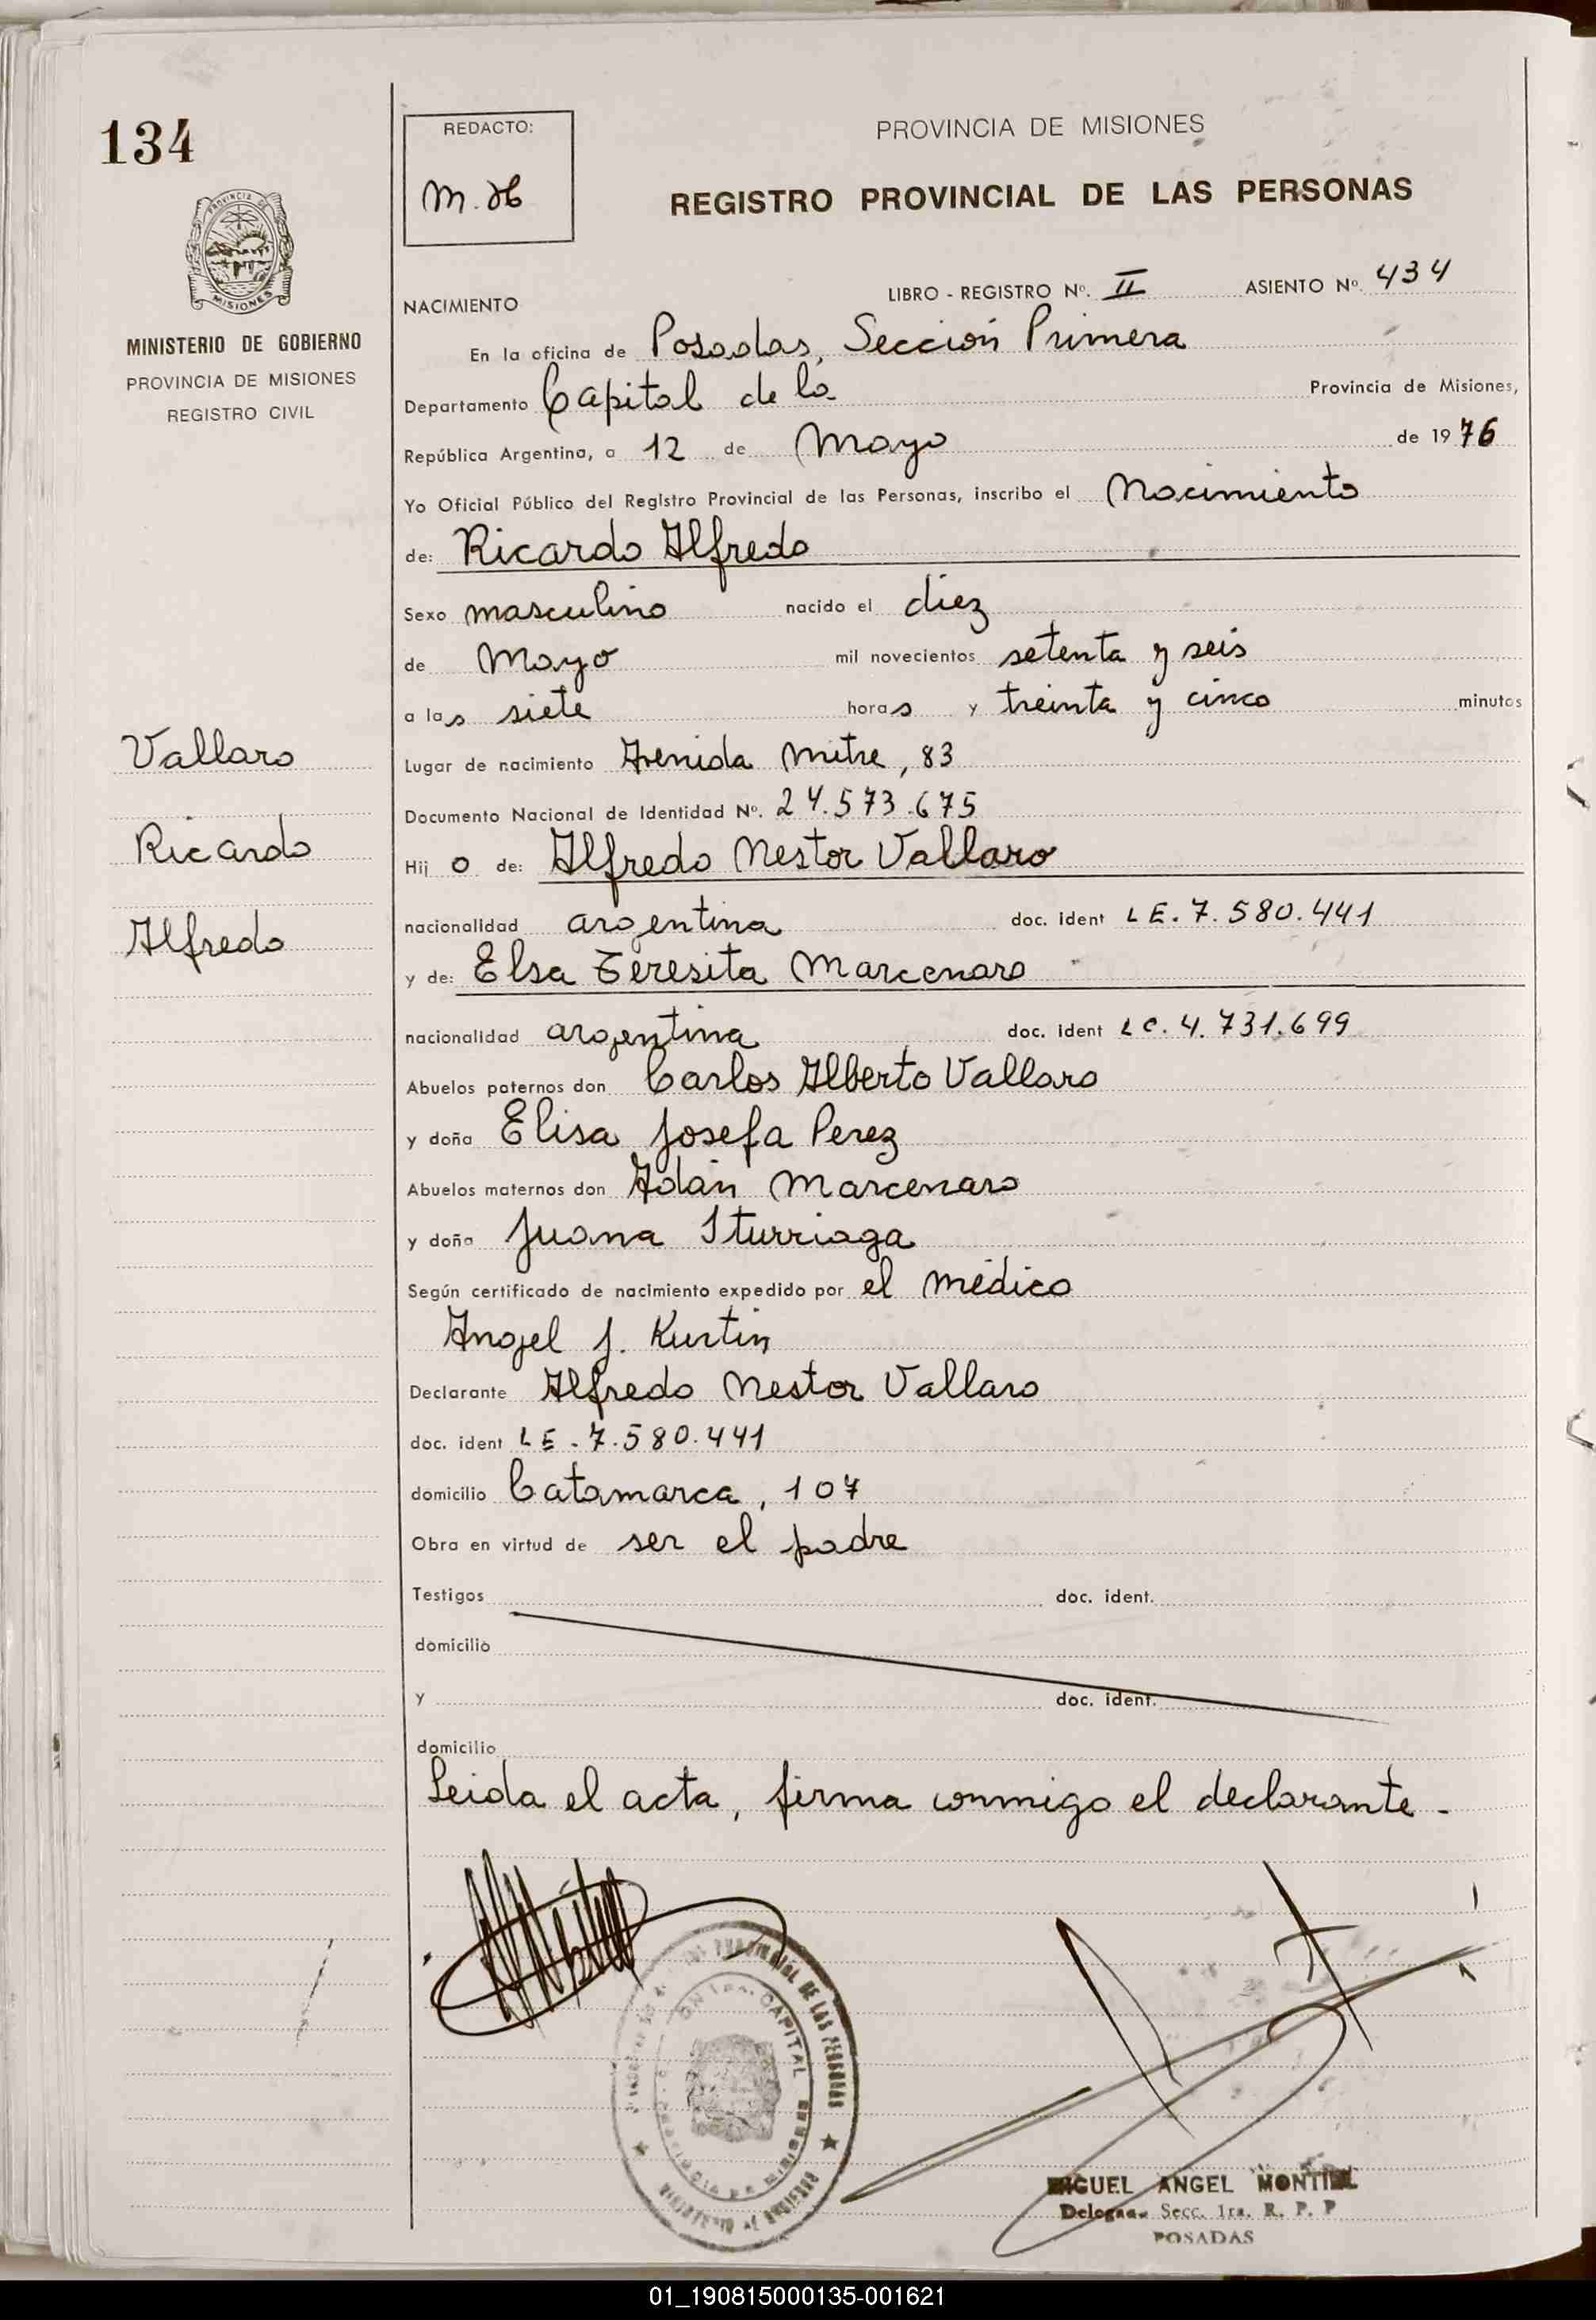 134
REDACTO:
M. H
PROVINCIA DE MISIONES
REGISTRO PROVINCIAL DE LAS PERSONAS
MISIONES
MINISTERIO DE GOBIERNO
PROVINCIA DE MISIONES
REGISTRO CIVIL
NACIMIENTO
LIBRO - REGISTRO Nº. II ASIENTO Nº. 434
En la oficina de Posadas, Sección Primera
Departamento Capital de la Provincia de Misiones,
República Argentina, a 12 de Mayo de 1976
Yo Oficial Público del Registro Provincial de las Personas, inscribo el Nacimiento
de: Ricardo Alfredo
Sexo masculino nacido el diez
de Mayo mil novecientos setenta y seis
a las siete horas y treinta y cinco minutos
Lugar de nacimiento Avenida Mitre, 83
Documento Nacional de Identidad Nº. 24.573.675
Hijo de: Alfredo Nestor Vallaro
nacionalidad argentina doc. ident LE. 7.580.441
y de: Elsa Teresita Marcenaro
nacionalidad argentina doc. ident LC. 4.731.699
Abuelos paternos don Carlos Alberto Vallaro
y doña Elisa Josefa Perez
Abuelos maternos don Adán Marcenaro
y doña Juana Iturriaga
Según certificado de nacimiento expedido por el médico
Angel J. Kurtin
Declarante Alfredo Nestor Vallaro
doc. ident LE. 7.580.441
domicilio Catamarca, 107
Obra en virtud de ser el padre
Testigos doc. ident.
domicilio
y doc. ident.
domicilio
Leida el acta, firma conmigo el declarante.-
Vallaro
Ricardo
Alfredo
PROVINCIAL DE LAS PERSONAS
CAPITAL
MIGUEL ANGEL MONTIEL
Secc. 1ra. R. P. P
POSADAS
01_190815000135-001621